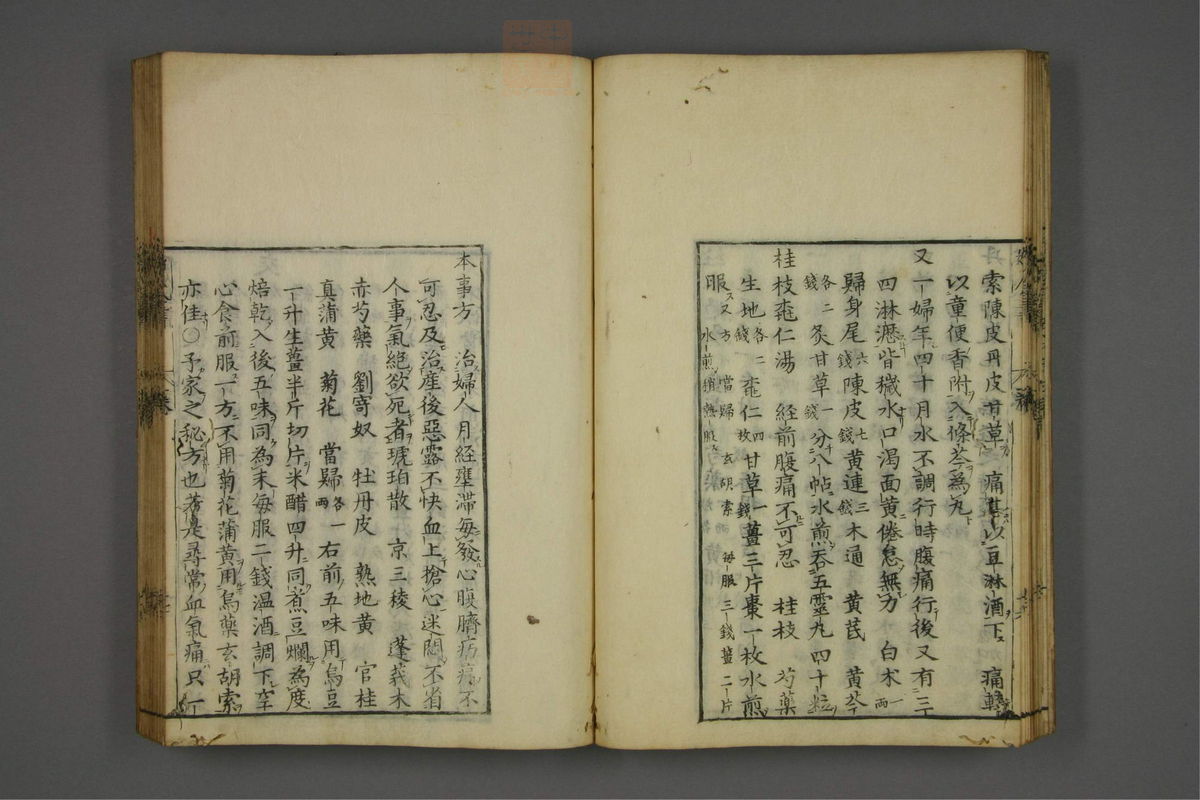 索陳皮丹皮甘草　痛甚以豆淋酒下　痛輕
以童便香附入條芩為丸
又一婦年四十月水不調行時腹痛行後又有三
四淋瀝皆穢水口渴面黄倦怠無力　白朮一兩
歸身尾六錢陳皮七錢黄連三錢木通　黄芪　黄芩
各二錢炙甘草一錢分八帖水煎吞五靈丸四十粒
桂枝桃仁湯　経前腹痛不可忍　桂枝　芍藥
生地各二錢桃仁四枚甘草一錢薑三片棗一枚水煎
服又方　當歸　玄胡索　毎服三錢薑二片
水煎稍熱服
本事方　治婦人月経壅滯毎發心腹臍㽲痛不
可忍及治産後惡露不快血上搶心迷悶不省
人事氣絶欲死者琥珀散　京三稜　蓬莪朮
赤芍藥　劉寄奴　牡丹皮　熟地黄　官桂
真蒲黄　菊花　當歸各一兩右前五味用烏豆
一升生薑半斤切片米醋四升同煮豆爛為度
焙乾入後五味同為末毎服二錢温酒調下空
心食前服一方不用菊花蒲黄用烏藥玄胡索
亦佳〇予家之秘方也若是尋常血氣痛只一